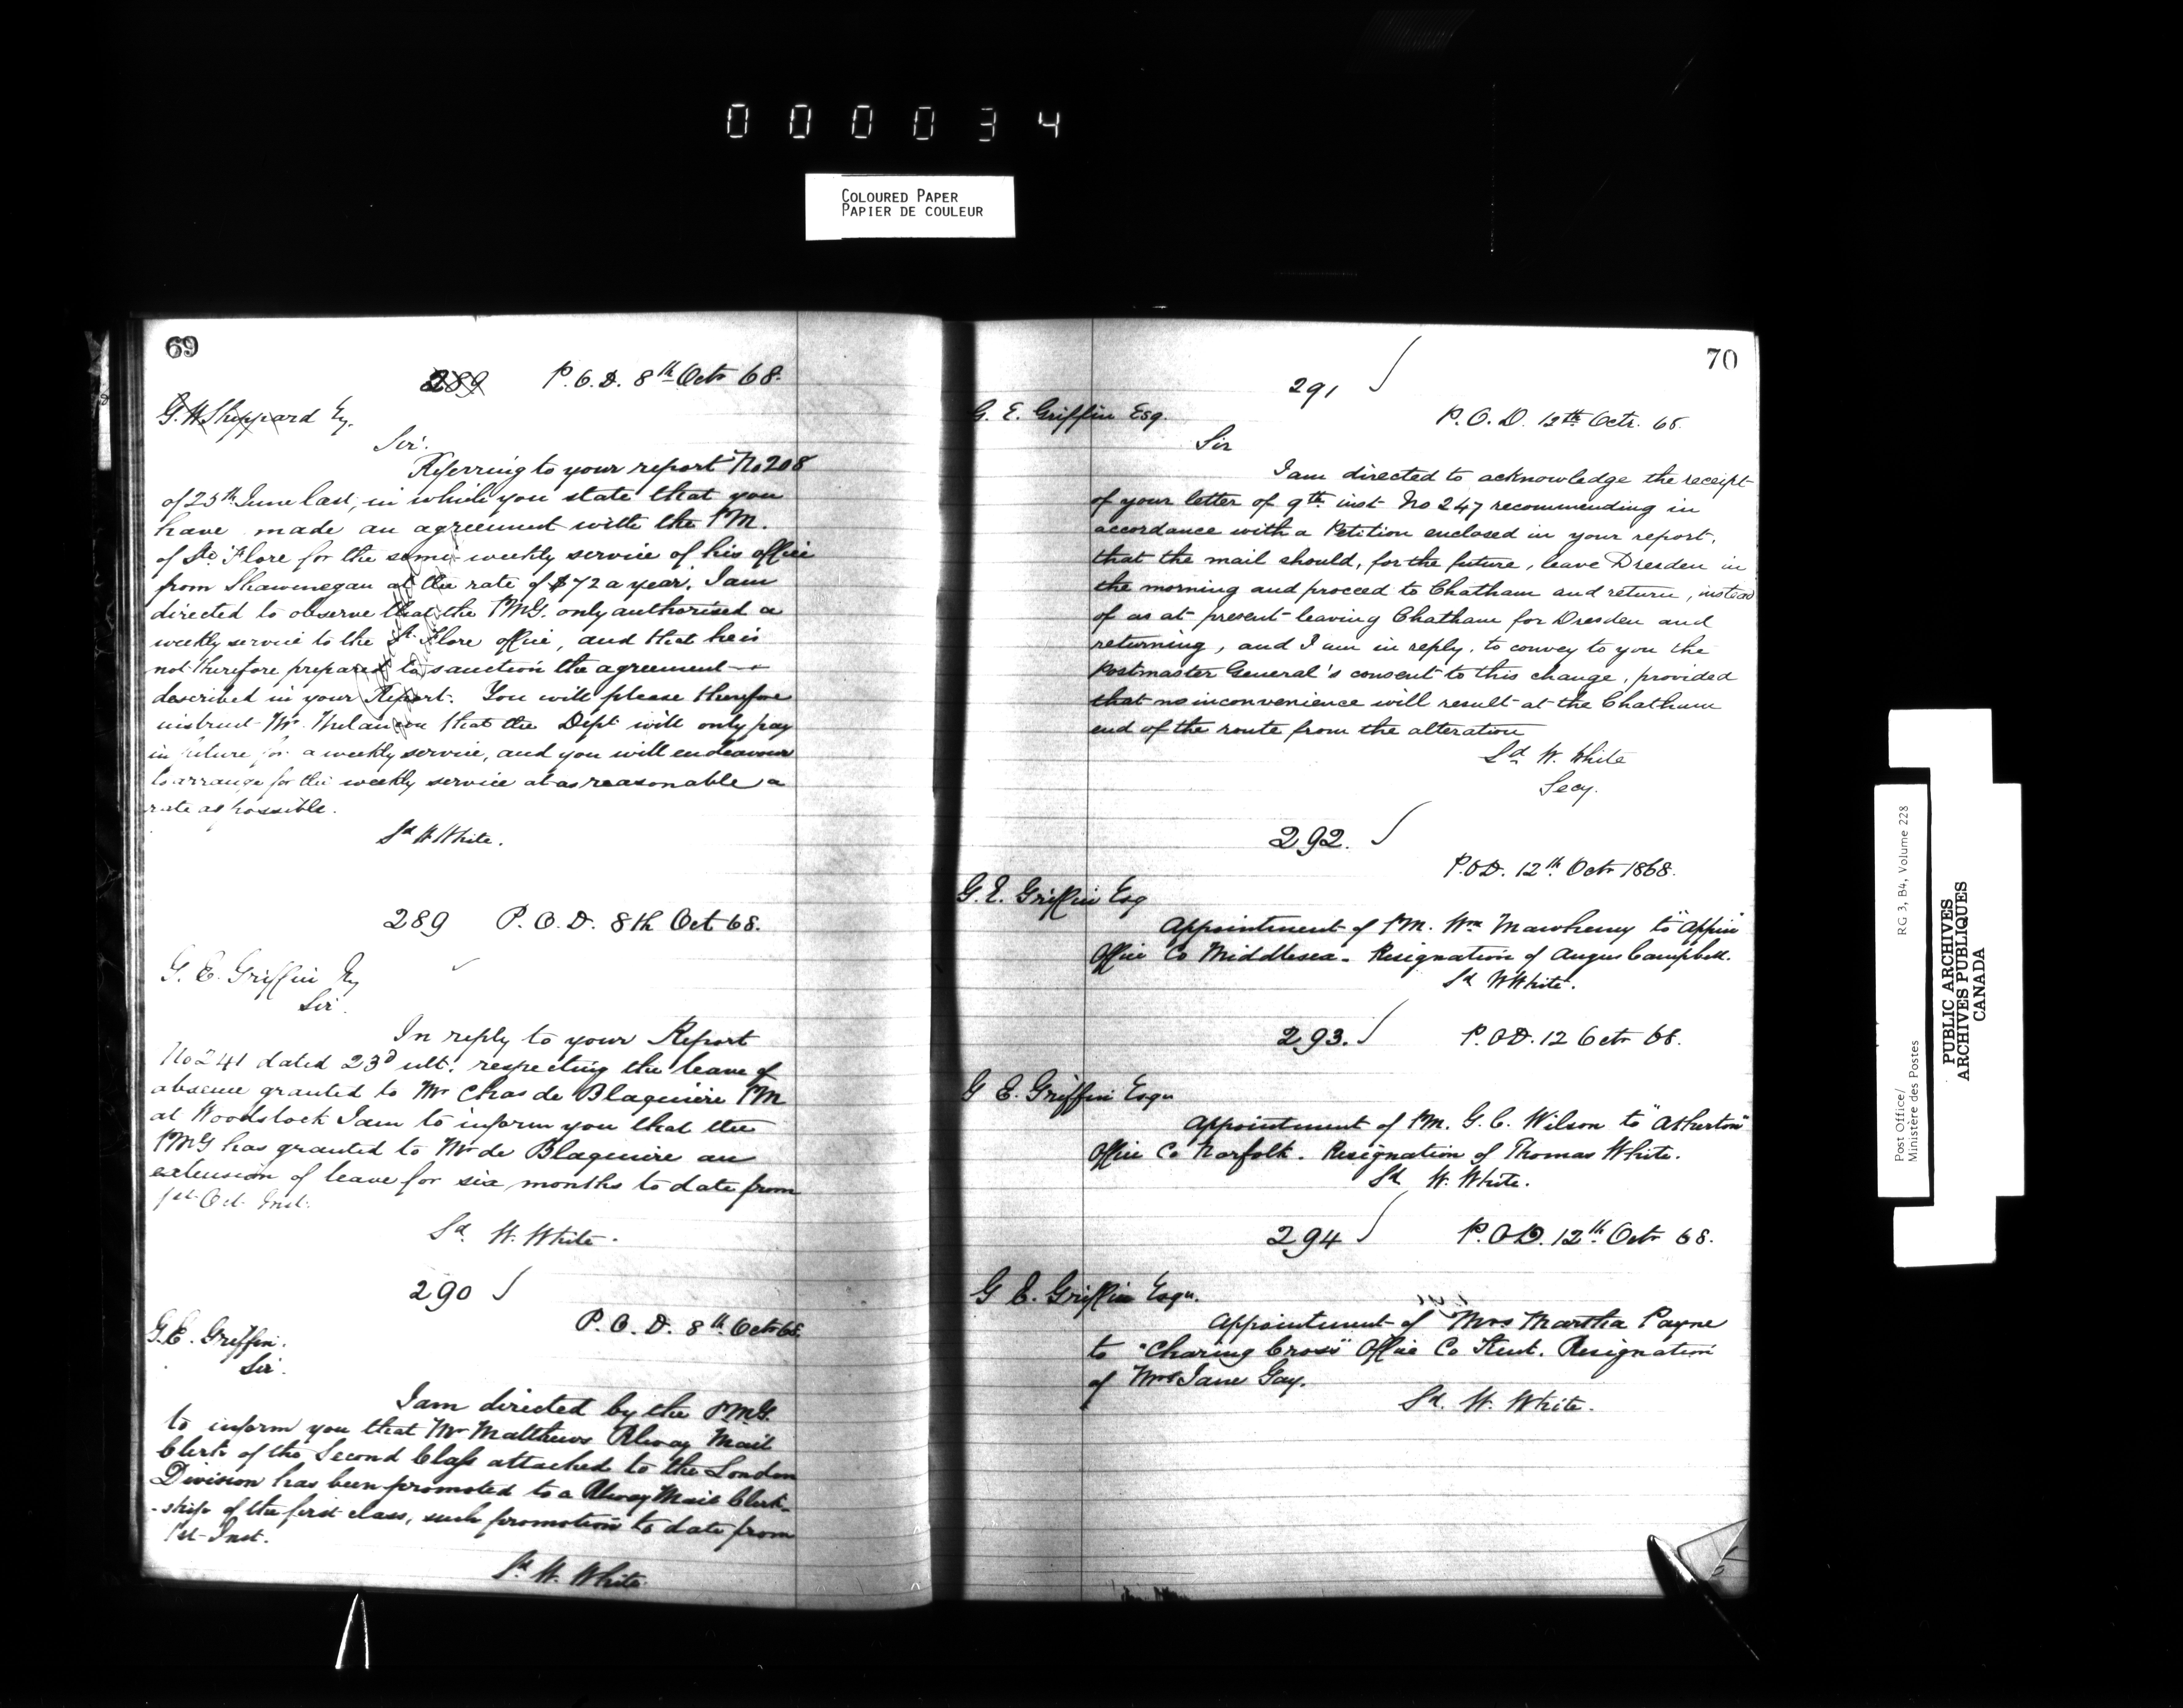 000034
COLOURED PAPER
PAPIER DE COULEUR
69
289 P.O.D. 8th Octr 68.
G. W. Sheppard Esq.
Sir.
Referring to your report No 208
of 25th June last, in which you state that you
have made an agreement with the PM.
of St. Flore for the semi-weekly service of his office
from Shawenegan at the rate of $72 a year. I am
directed to observe that the PMG. only authorised a
weekly service to the St. Flore office, and that he is
not therefore prepared to sanction the agreement
described in your Report. You will please therefore
instruct Mr. that the Dept will only pay
in future for a weekly service, and you will endeavour
to arrange for the weekly service at as reasonable a
rate as possible.
Sd W White.
289 P.O.D. 8th Oct 68.
G. E. Griffin Esq
Sir.
In reply to your Report
No 241 dated 23d ult. respecting the leave of
absence granted to Mr Chas de Blaquiere PM
at Woodstock I am to inform you that the
PMG has granted to Mr de Blaquiere an
extension of leave for six months to date from
1st Oct. Inst.
Sd. W. White.
290
P.O.D. 8th. Octr 68.
G. E. Griffin.
Sir.
I am directed by the P.M.G.
to inform you that Mr Matthews Rlway Mail
Clerk of the Second Class attached to the London
Division has been promoted to a Rlway Mail Clerk-
-ship of the first class, such promotion to date from
1st Inst.
Sd. W. White
70
291
G. E. Griffin Esq.
P.O.D. 12th Octr. 68.
Sir
I am directed to acknowledge the receipt
of your letter of 9th inst No 247 recommending in
accordance with a Petition enclosed in your report,
that the mail should, for the future, leave Dresden in
the morning and proceed to Chatham and return, instead
of as at present leaving Chatham for Dresden and
returning, and I am in reply, to convey to you the
Postmaster General's consent to this change, provided
that no inconvenience will result at the Chatham
end of the route from the alteration
Sd. W. White
Secy.
292.
P.O.D. 12th Octr 1868.
G. E. Griffin Esq
Appointment of PM. Wm Mawhenny to "Appin"
Office Co Middlesex. Resignation of Angus Campbell.
Sd W White.
293. P.O.D. 12 Octr 68.
G E. Griffin Esqu
Appointment of PM. G. C. Wilson to "Atherton"
Office Co Norfolk. Resignation of Thomas White.
Sd W. White.
294 P.O.D. 12th. Octr 68.
G E. Griffin Esqu.
Appointment of Mrs Martha Payne
to "Charing Cross" Office Co Kent. Resignation
of Mrs Jane Gay.
Sd. W. White.
Post Office/
Ministère des Postes
RG 3, B4, Volume 228
PUBLIC ARCHIVES
ARCHIVES PUBLIQUES
CANADA